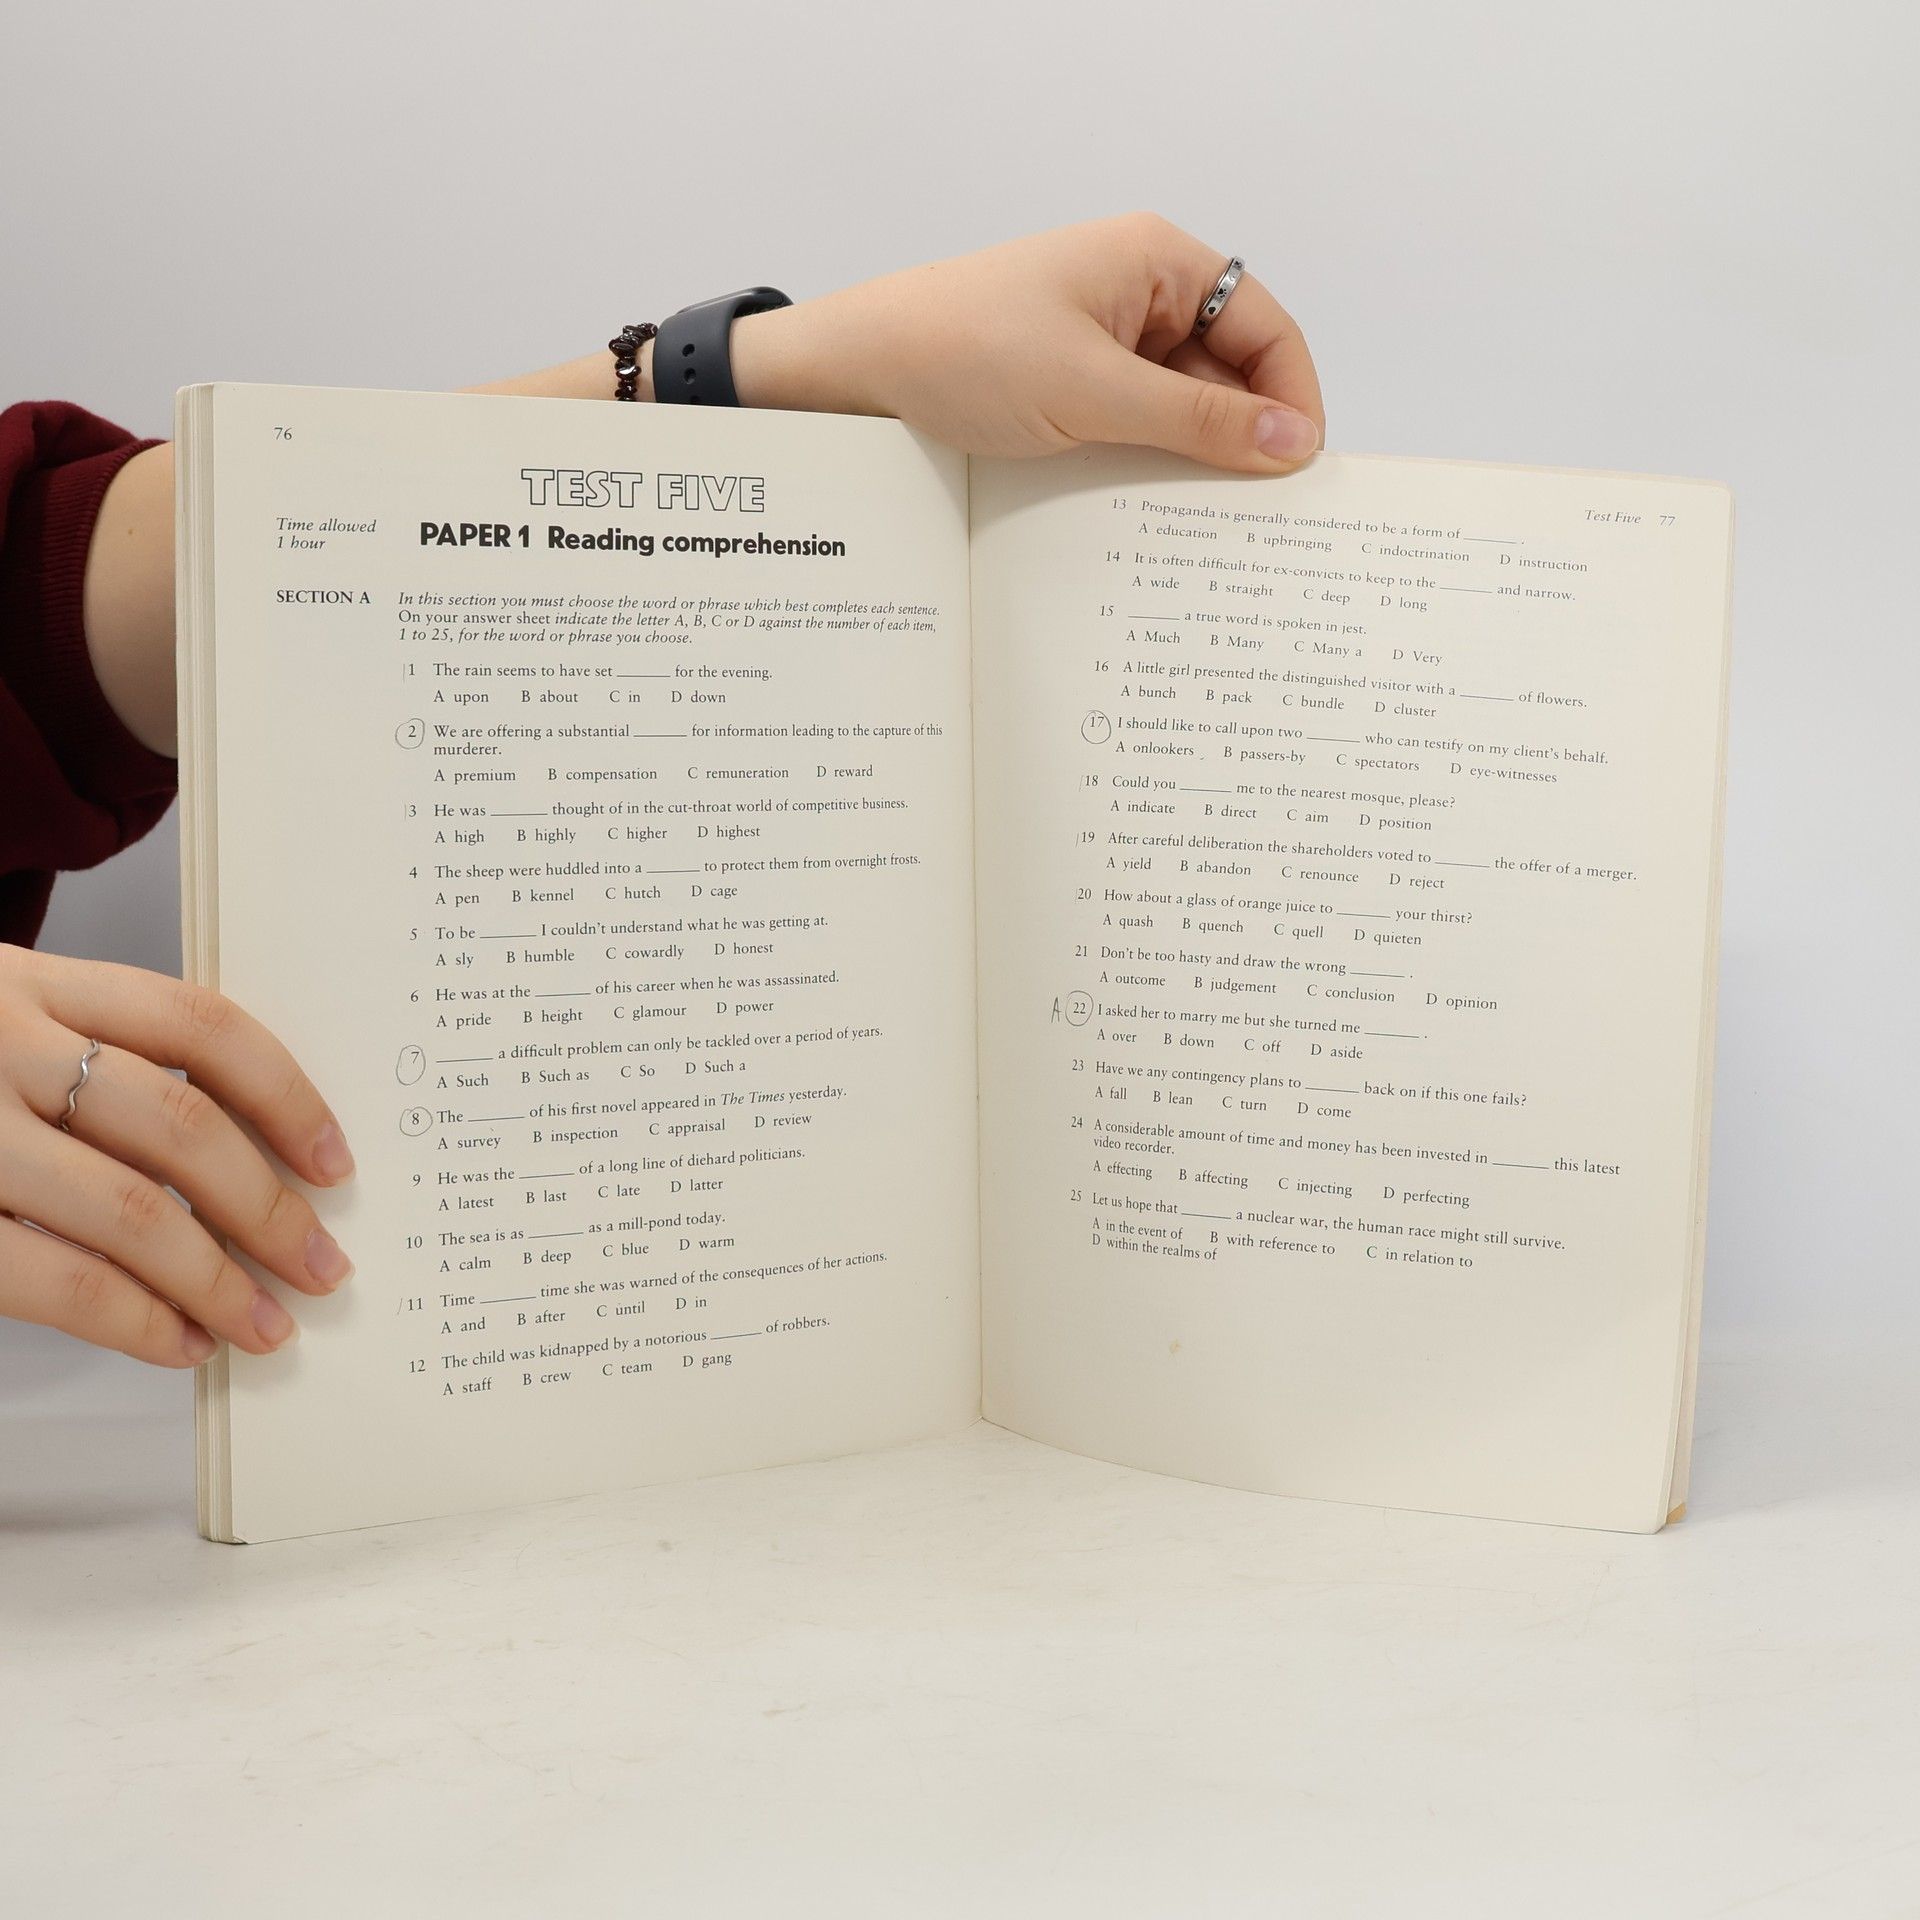 76
TEST FIVE
Time allowed
1 hour
PAPER 1 Reading comprehension
SECTION A
In this section you must choose the word or phrase which best completes each sentence.
On your answer sheet indicate the letter A, B, C or D against the number of each item,
1 to 25, for the word or phrase you choose.
1 The rain seems to have set ______ for the evening.
A upon B about C in D down
2 We are offering a substantial ______ for information leading to the capture of this
murderer.
A premium B compensation C remuneration D reward
3 He was ______ thought of in the cut-throat world of competitive business.
A high B highly C higher D highest
4 The sheep were huddled into a ______ to protect them from overnight frosts.
A pen B kennel C hutch D cage
5 To be ______ I couldn't understand what he was getting at.
A sly B humble C cowardly D honest
6 He was at the ______ of his career when he was assassinated.
A pride B height C glamour D power
7 ______ a difficult problem can only be tackled over a period of years.
A Such B Such as C So D Such a
8 The ______ of his first novel appeared in The Times yesterday.
A survey B inspection C appraisal D review
9 He was the ______ of a long line of diehard politicians.
A latest B last C late D latter
10 The sea is as ______ as a mill-pond today.
A calm B deep C blue D warm
11 Time ______ time she was warned of the consequences of her actions.
A and B after C until D in
12 The child was kidnapped by a notorious ______ of robbers.
A staff B crew C team D gang
Test Five 77
13 Propaganda is generally considered to be a form of ______ .
A education B upbringing C indoctrination D instruction
14 It is often difficult for ex-convicts to keep to the ______ and narrow.
A wide B straight C deep D long
15 ______ a true word is spoken in jest.
A Much B Many C Many a D Very
16 A little girl presented the distinguished visitor with a ______ of flowers.
A bunch B pack C bundle D cluster
17 I should like to call upon two ______ who can testify on my client's behalf.
A onlookers B passers-by C spectators D eye-witnesses
18 Could you ______ me to the nearest mosque, please?
A indicate B direct C aim D position
19 After careful deliberation the shareholders voted to ______ the offer of a merger.
A yield B abandon C renounce D reject
20 How about a glass of orange juice to ______ your thirst?
A quash B quench C quell D quieten
21 Don't be too hasty and draw the wrong ______ .
A outcome B judgement C conclusion D opinion
A 22 I asked her to marry me but she turned me ______ .
A over B down C off D aside
23 Have we any contingency plans to ______ back on if this one fails?
A fall B lean C turn D come
24 A considerable amount of time and money has been invested in ______ this latest
video recorder.
A effecting B affecting C injecting D perfecting
25 Let us hope that ______ a nuclear war, the human race might still survive.
A in the event of B with reference to C in relation to
D within the realms of